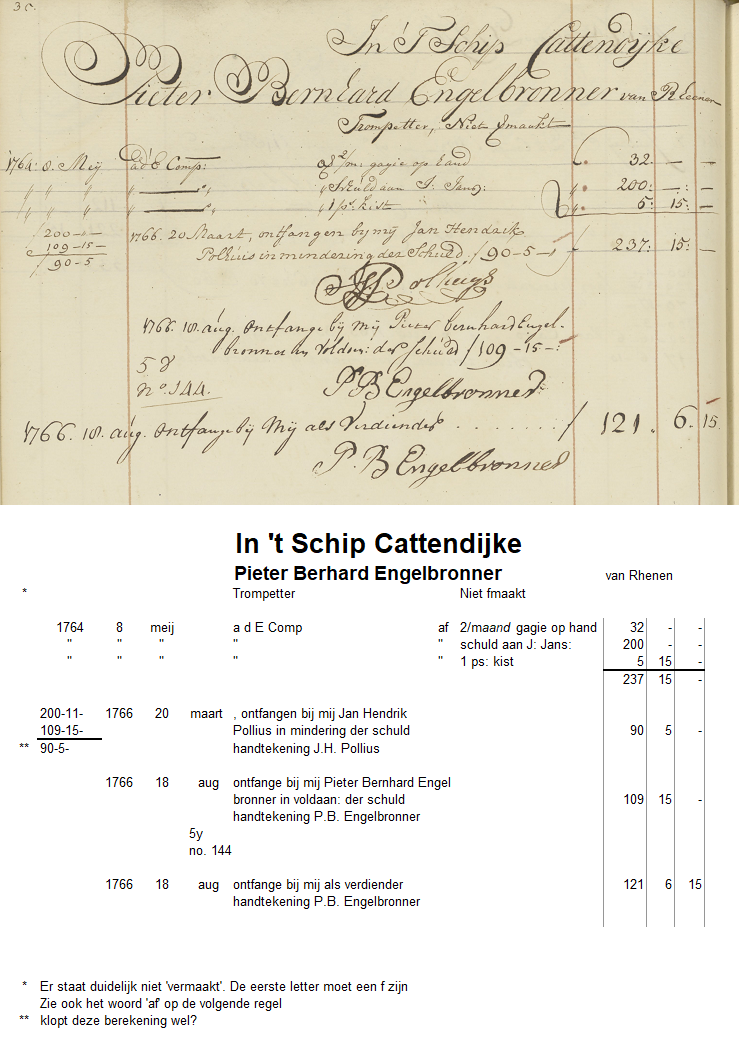 30.
In 'T Schip Cattendijke
Pieter Bernhard Engelbronner van Rheenen
Trompetter, Niet fmaakt
1764: 8. Meij ad E Comp: af 2/m: gagie op hand f. 32. — —
" " " " " " schuld aan J. Jans: " 200: —: —
" " " " " " 1 ps: kist " 5: 15: —
200 — — 1766. 20 Maart, ontfangen bij mij Jan Hendrik
109 - 15 - Pollius in mindering der Schuld f 90 - 5 - f 237: 15: —
90 - 5
JHPollius
1766. 18. aug. ontfange bij mij Pieter bernhard Engel-
bronner in Voldoen: der schuld f 109 - 15 -:
58
no. 144.
P B Engelbronner
1766. 18. aug. ontfange bij Mij als Verdiender . . . . . . . f 121. 6. 15.
P. B Engelbronner
In 't Schip Cattendijke
Pieter Berhard Engelbronner van Rhenen
* Trompetter Niet fmaakt
1764 8 meij a d E Comp af 2/maand gagie op hand 32 - -
" " " " " schuld aan J: Jans: 200 - -
" " " " " 1 ps: kist 5 15 -
237 15 -
200-11- 1766 20 maart , ontfangen bij mij Jan Hendrik
109-15- Pollius in mindering der schuld 90 5 -
** 90-5- handtekening J.H. Pollius
1766 18 aug ontfange bij mij Pieter Bernhard Engel
bronner in voldaan: der schuld 109 15 -
handtekening P.B. Engelbronner
5y
no. 144
1766 18 aug ontfange bij mij als verdiender 121 6 15
handtekening P.B. Engelbronner
* Er staat duidelijk niet 'vermaakt'. De eerste letter moet een f zijn
Zie ook het woord 'af' op de volgende regel
** klopt deze berekening wel?